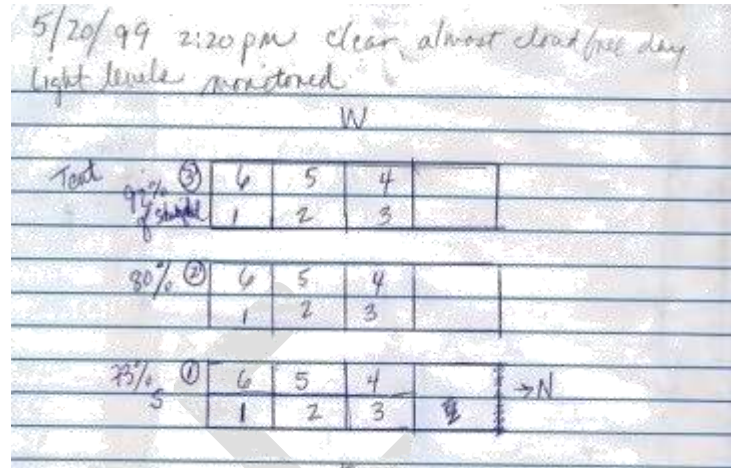 5/20/99 2:20 pm clear, almost cloud free day
light levels monitored
W
Tent 92% ③ 6 5 4
1 2 3
80% ② 6 5 4
1 2 3
73% ① 6 5 4 →N
S 1 2 3